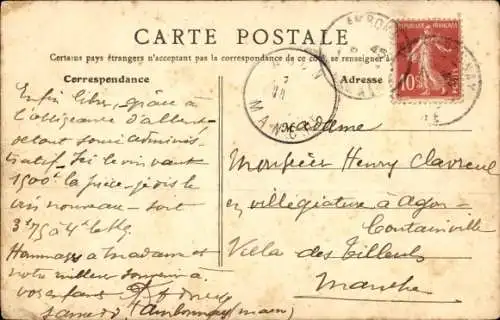 CARTE POSTALE
Certains pays étrangers n'acceptent pas la correspondance de ce côté, se renseigner à
Correspondance
Adresse
REPUBLIQUE FRANÇAISE
10
MANCHE
Enfin libre, grâce à
l'obligeance d'
de tout souci adminis-
tratif. Ici le vin vaut
1500f la pièce je dis le
vin nouveau - soit
3f75 à 4f le Kg.
Hommages à Madame et
notre meilleur souvenir à
vos enfants
samedi Ambonnay (marn)
Madame
Monsieur Henry Clavreul
en villégiature à Agon-
Coutainville
Villa des Tilleuls
Manche